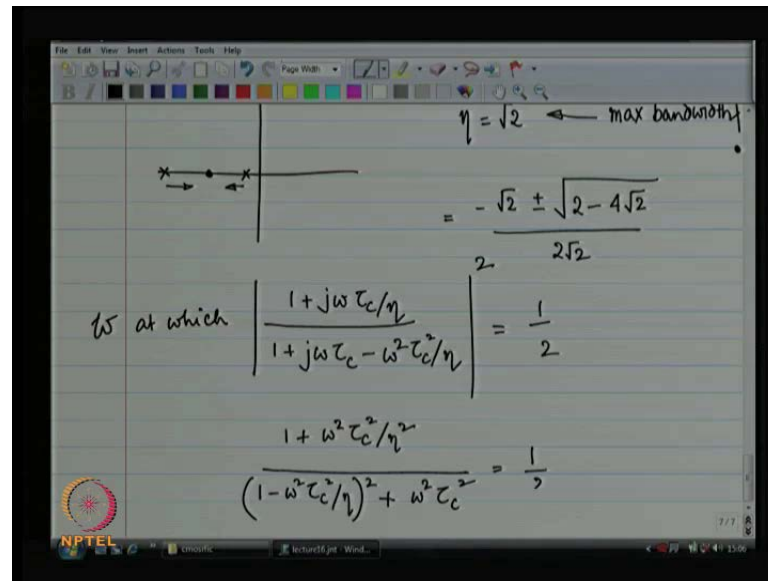 File Edit View Insert Actions Tools Help
Page Width
B I
η = √2 ← max bandwidth
= (-√2 ± √(2 - 4√2)) / 2√2
2
ω at which | (1 + jωτc/η) / (1 + jωτc - ω²τc²/η) | = 1/2
(1 + ω²τc²/η²) / ((1 - ω²τc²/η)² + ω²τc²) = 1/2
7/7
NPTEL
cmosrfic lecture16.jnt - Wind... 15:06